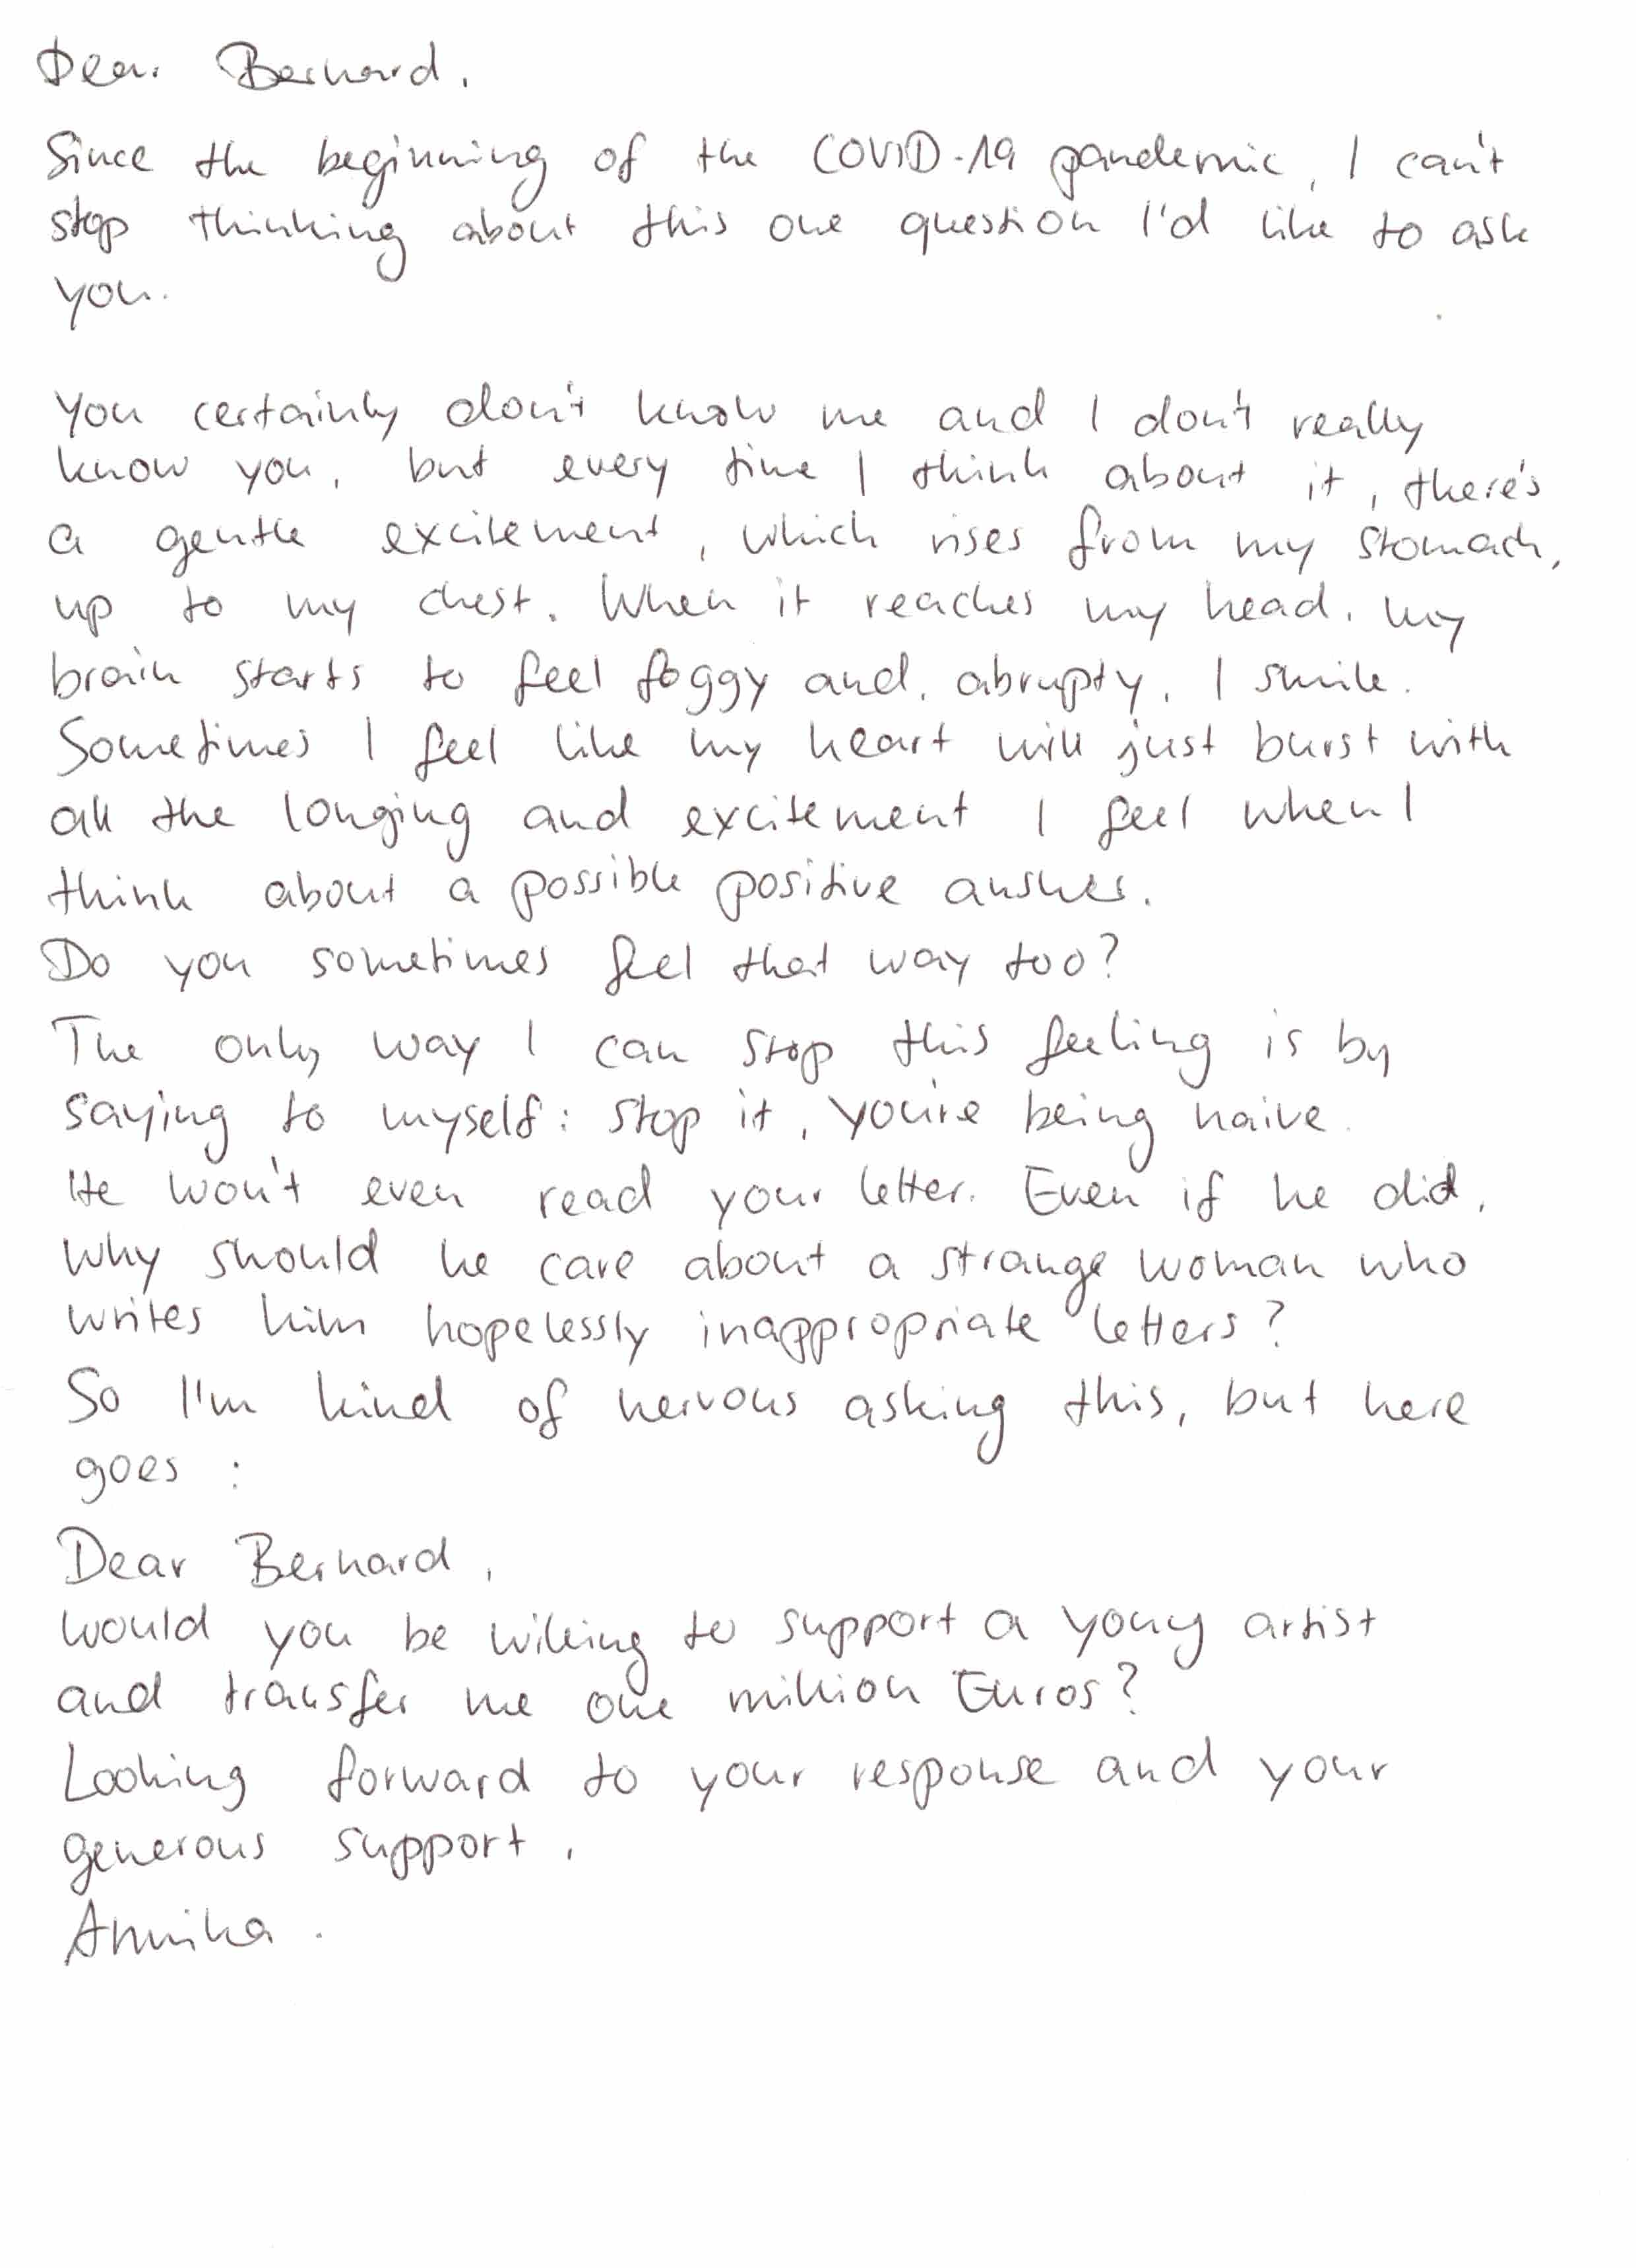 Dear Bernard,
Since the beginning of the COVID-19 pandemic, I can't
stop thinking about this one question I'd like to ask
you.
You certainly don't know me and I don't really
know you, but every time I think about it, there's
a gentle excitement, which rises from my stomach,
up to my chest. When it reaches my head, my
brain starts to feel foggy and, abrupty, I smile.
Sometimes I feel like my heart will just burst with
all the longing and excitement I feel when I
think about a possible positive answer.
Do you sometimes feel that way too?
The only way I can stop this feeling is by
saying to myself: Stop it, you're being naive.
He won't even read your letter. Even if he did,
why should he care about a strange woman who
writes him hopelessly inappropriate letters?
So I'm kind of nervous asking this, but here
goes :
Dear Bernard,
would you be willing to support a young artist
and transfer me one million Euros?
Looking forward to your response and your
generous support,
Annika.